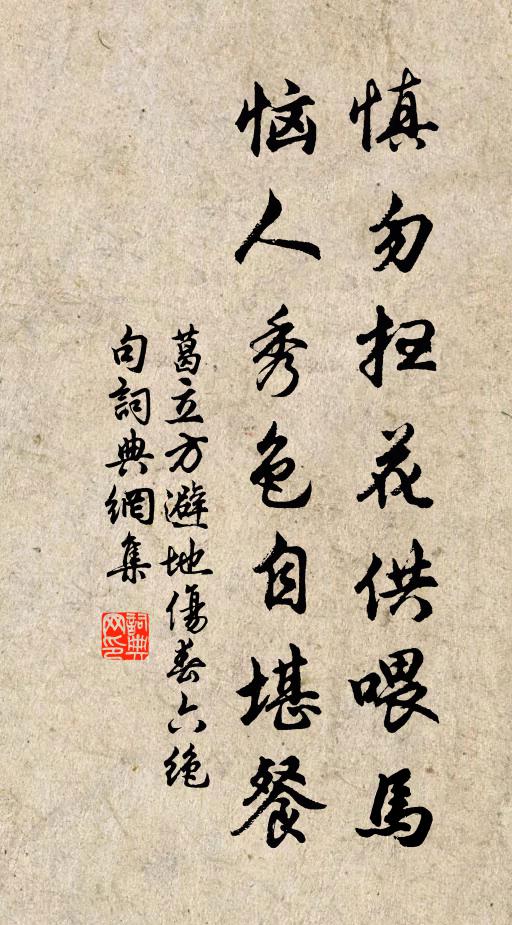 慎勿扫花供喂馬
恼人秀色自堪餐
葛立方避地傷春六絶
句詞典網集
詞典网印